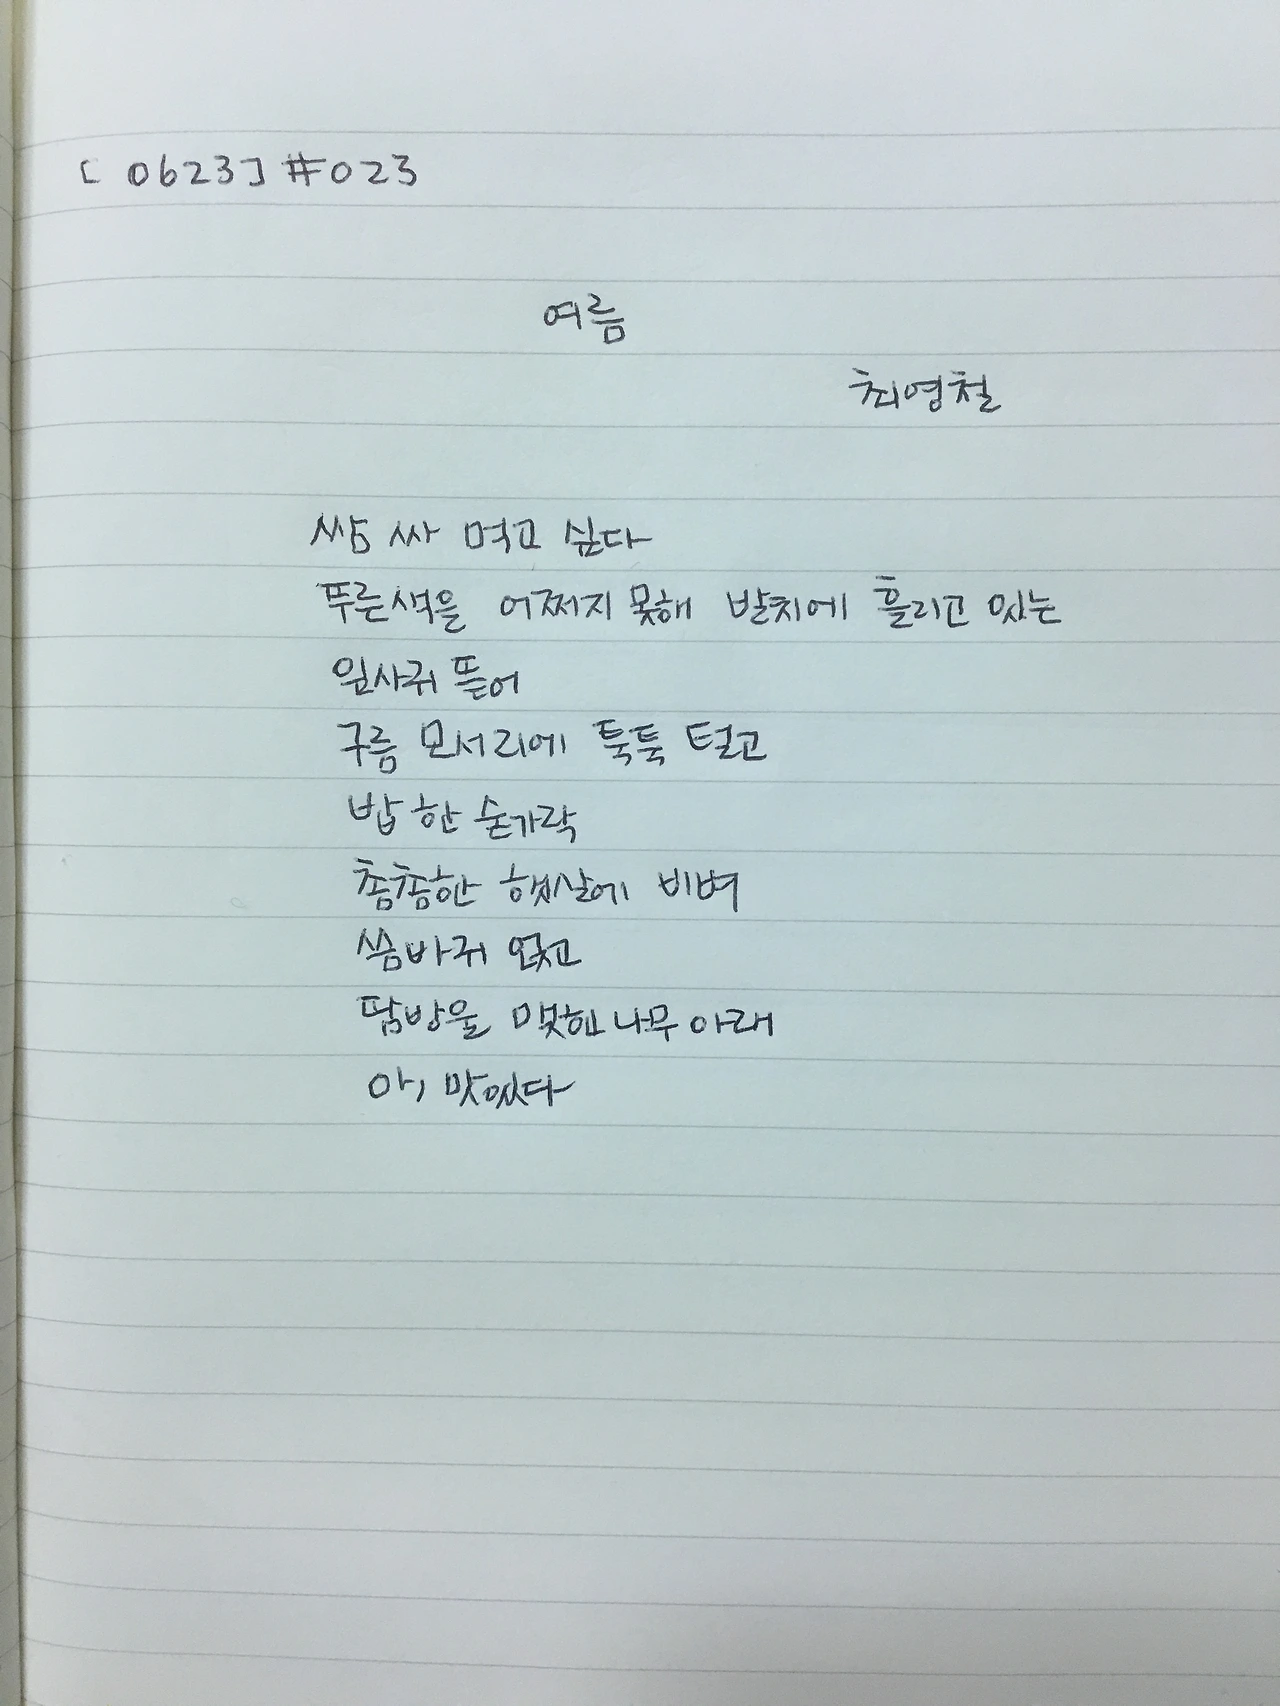 [ 0623] #023
여름
최영철
쌈 싸 먹고 싶다
푸른색을 어쩌지 못해 발치에 흘리고 있는
잎사귀 뜯어
구름 모서리에 툭툭 털고
밥 한 숟가락
촘촘한 햇살에 비벼
씀바귀 얹고
땀방울 맺힌 나무 아래
아, 맛있다